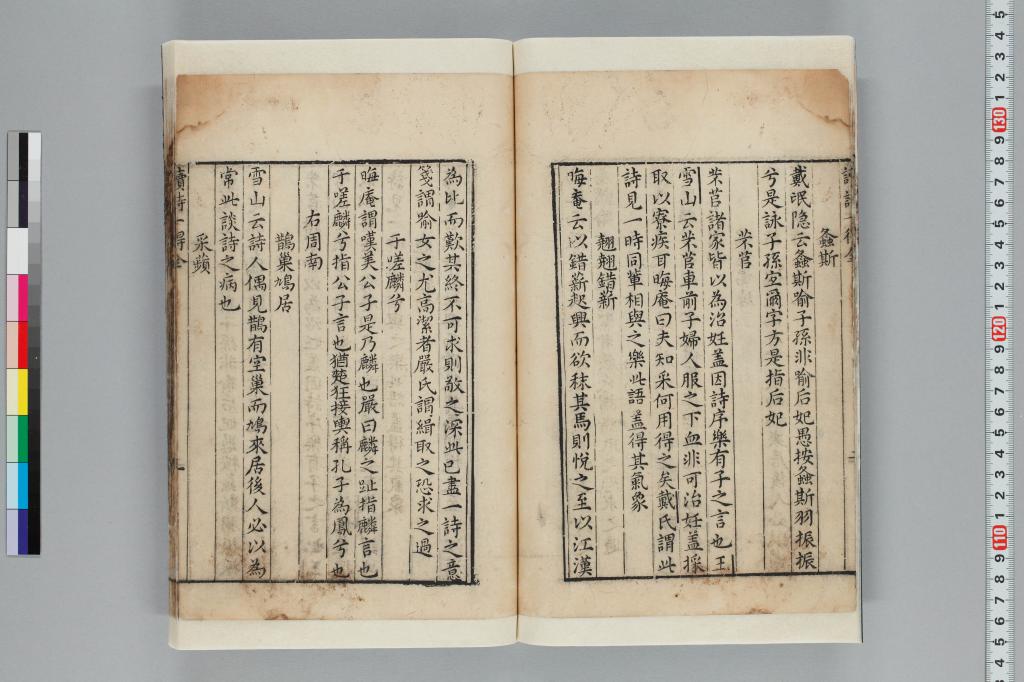 螽斯
戴岷隐云螽斯喻子孫非喻后妃愚按螽斯羽振振
兮是詠子孫空爾字方是指后妃
芣苢
芣苢諸家皆以為治姙盖因詩序樂有子之言也王
雪山云芣苢車前子婦人服之下血非可治姙盖採
取以寮疾耳晦庵曰夫知采何用得之矣戴氏謂此
詩見一時同軰相與之樂此語盖得其氣象
翹翹錯薪
晦庵云以錯薪起興而欲秣其馬則悅之至以江漢
為比而歎其終不可求則敬之深此已盡一詩之意
箋謂喻女之尤高潔者嚴氏謂緝取之恐求之過
于嗟麟兮
晦庵謂嘆美公子是乃麟也嚴曰麟之趾指麟言也
于嗟麟兮指公子言也猶楚狂接輿稱孔子為鳳兮也
右周南
鵲巢鳩居
雪山云詩人偶見鵲有空巢而鳩來居後人必以為
常此談詩之病也
采蘋
讀詩一得全